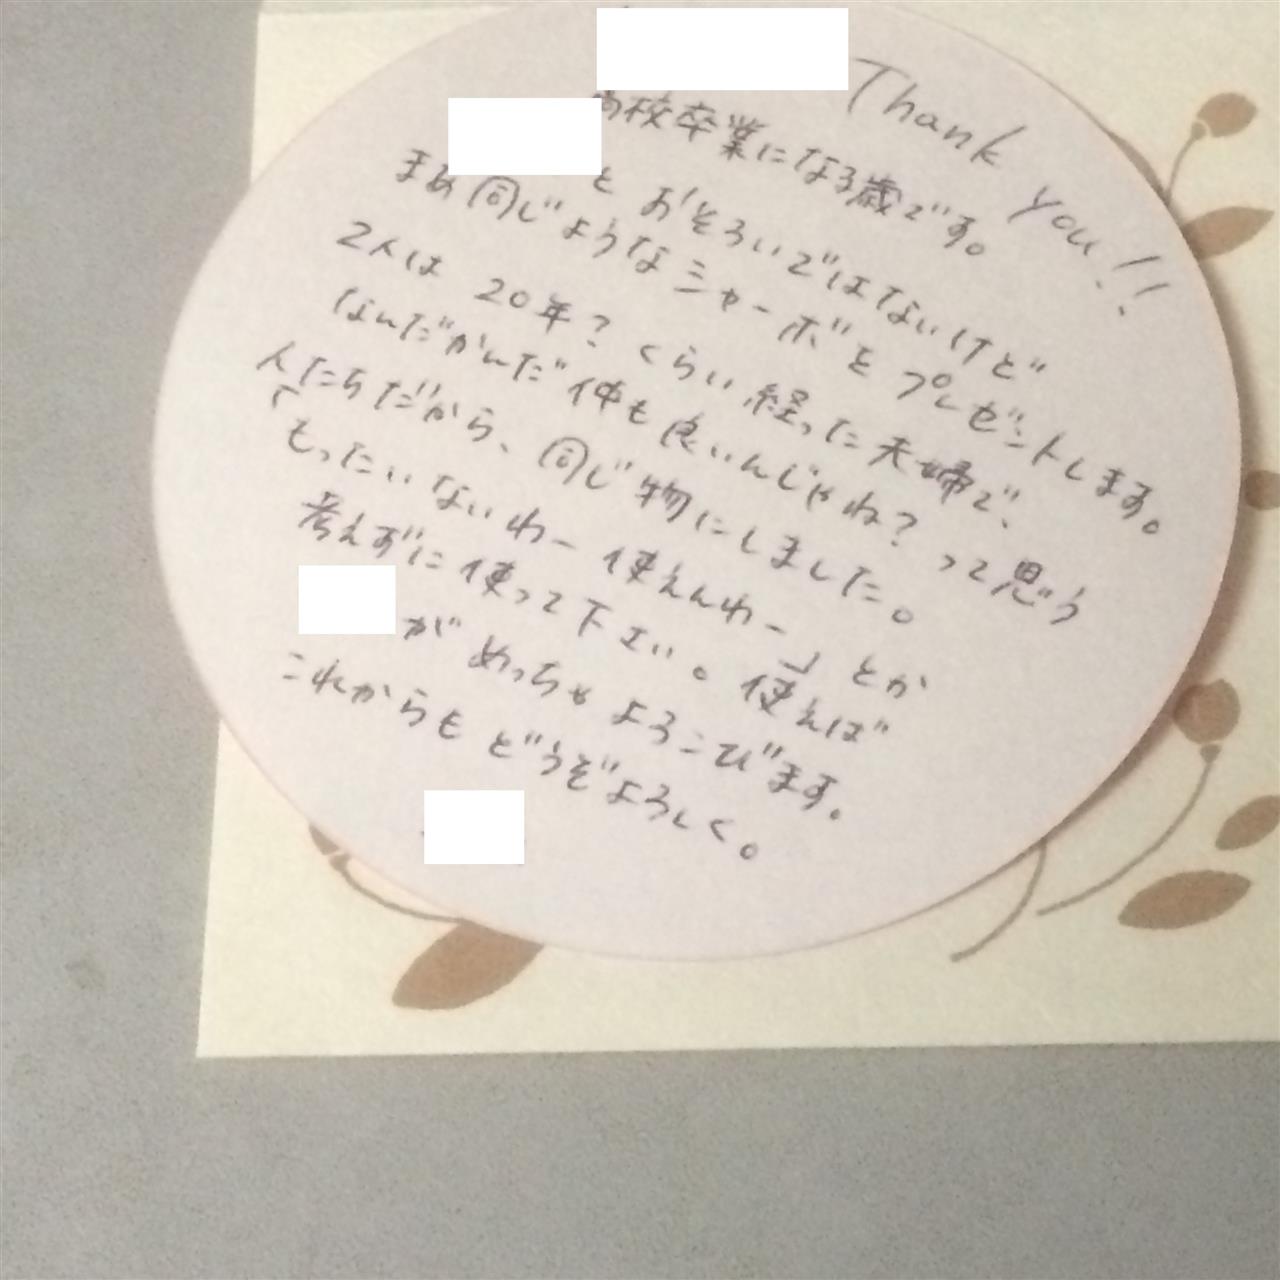 Thank you!!
高校卒業になる歳です。
と おそろいではないけど
まぁ同じようなシャーボをプレゼントします。
2人は 20年?くらい経った夫婦で、
なんだかんだ仲も良いんじゃね?って思う
人たちだから、同じ物にしました。
「もったいないわー使えんわー」とか
考えずに使って下さい。使えば
がめっちゃよろこびます。
これからもどうぞよろしく。